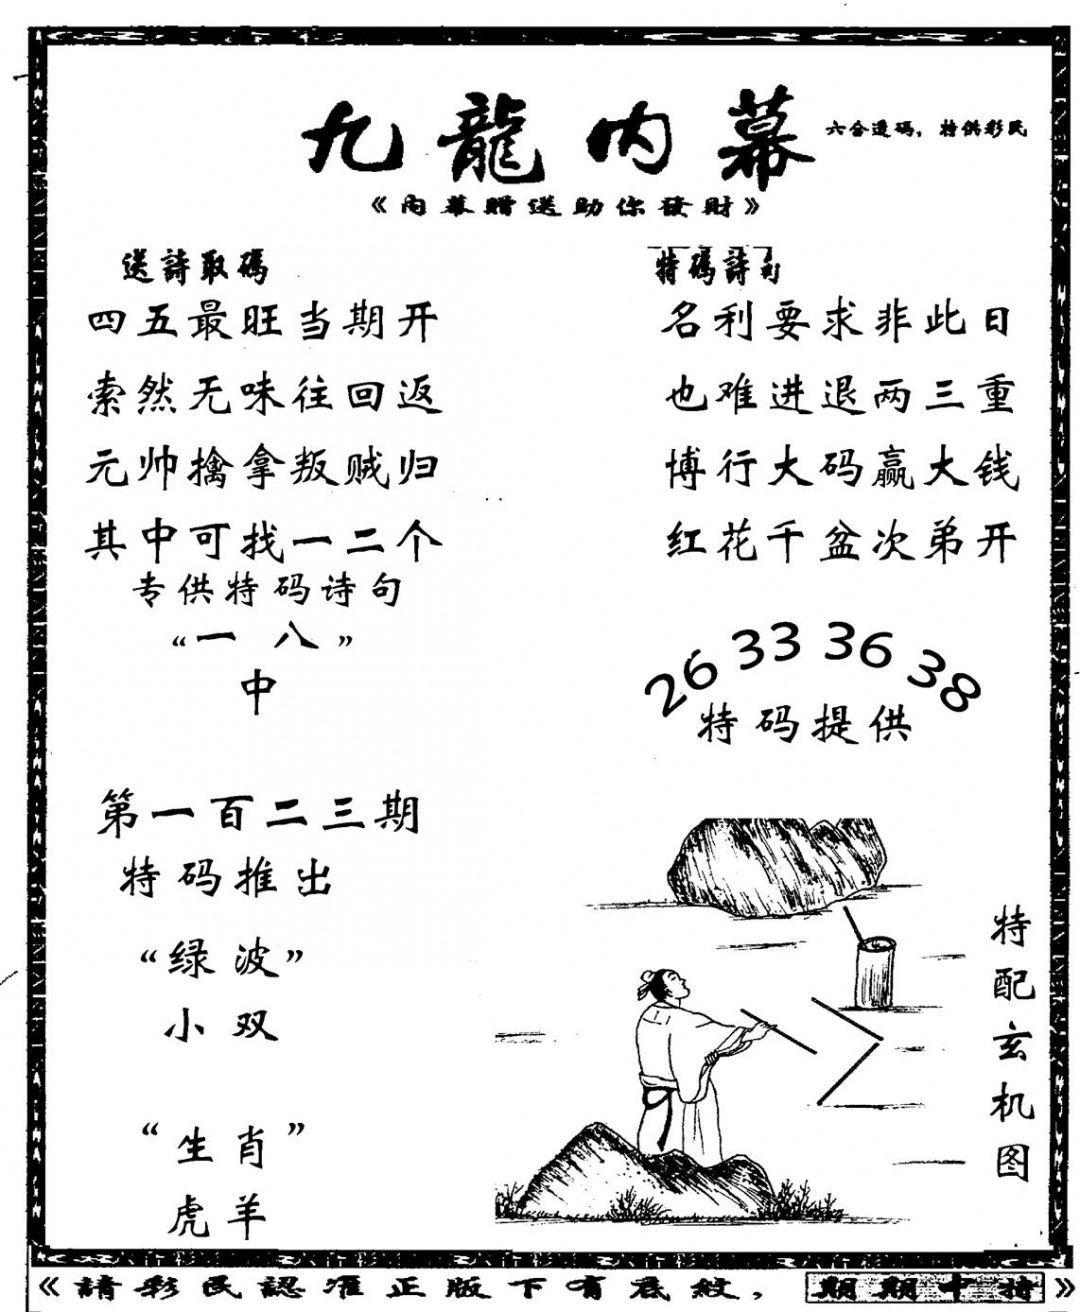 九龍内幕
六合透码，特供彩民
《内幕赠送助你發財》
送詩取碼
四五最旺当期开
索然无味往回返
元帅擒拿叛贼归
其中可找一二个
专供特码诗句
“一八”
中
特碼詩句
名利要求非此日
也难进退两三重
博行大码赢大钱
红花千盆次弟开
26 33 36 38
特码提供
第一百二三期
特码推出
“绿波”
小双
“生肖”
虎羊
特配玄机图
《請彩民認准正版下有底紋，期期中特》